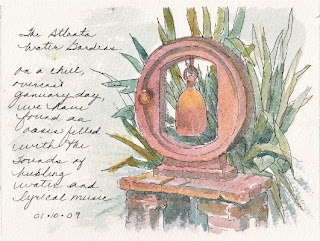 The Atlanta
Water Gardens
on a chill,
overcast
January day,
we have
found an
oasis filled
with the
sounds of
bubbling
water and
lyrical music
01.10.09